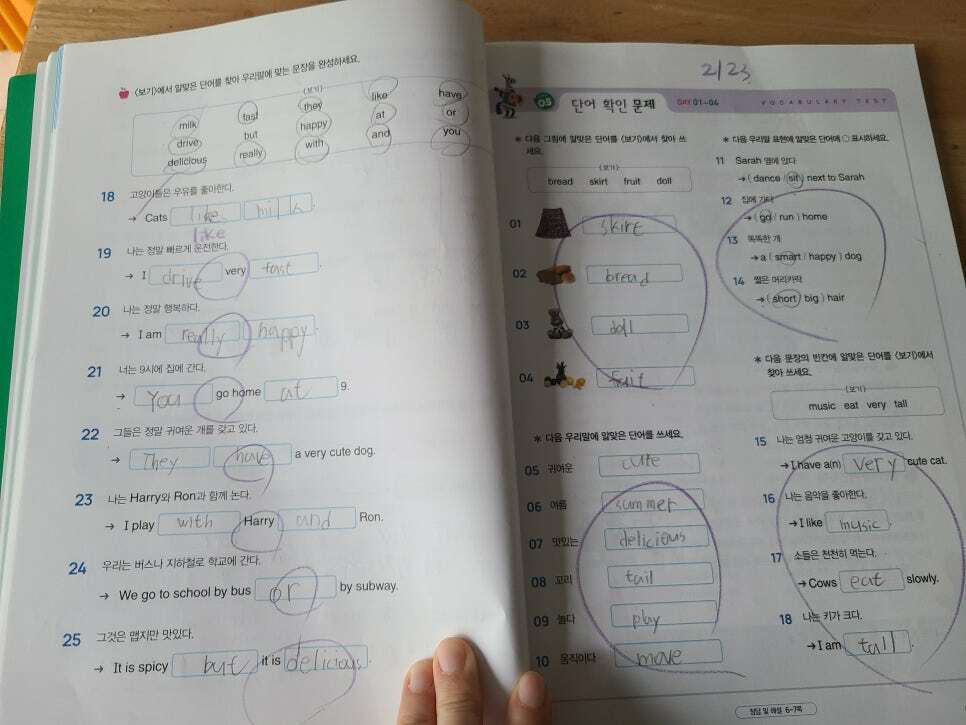 <보기>에서 알맞은 단어를 찾아 우리말에 맞는 문장을 완성하세요.
<보기>
milk fast they like have
drive but happy at or
delicious really with and you
18 고양이들은 우유를 좋아한다.
→ Cats like milk.
like
19 나는 정말 빠르게 운전한다.
→ I drive very fast.
20 나는 정말 행복하다.
→ I am really happy.
21 너는 9시에 집에 간다.
→ You go home at 9.
22 그들은 정말 귀여운 개를 갖고 있다.
→ They have a very cute dog.
23 나는 Harry와 Ron과 함께 논다.
→ I play with Harry and Ron.
24 우리는 버스나 지하철로 학교에 간다.
→ We go to school by bus or by subway.
25 그것은 맵지만 맛있다.
→ It is spicy but it is delicious.
2/23
05 단어 확인 문제 DAY 01~04 VOCABULARY TEST
* 다음 그림에 알맞은 단어를 <보기>에서 찾아 쓰
세요.
<보기>
bread skirt fruit doll
01 skirt
02 bread
03 doll
04 fuit
* 다음 우리말에 알맞은 단어를 쓰세요.
05 귀여운 cute
06 여름 summer
07 맛있는 delicious
08 꼬리 tail
09 놀다 play
10 움직이다 move
* 다음 우리말 표현에 알맞은 단어에 ○ 표시하세요.
11 Sarah 옆에 앉다
→ ( dance / sit ) next to Sarah
12 집에 가다
→ ( go / run ) home
13 똑똑한 개
→ a ( smart / happy ) dog
14 짧은 머리카락
→ ( short / big ) hair
* 다음 문장의 빈칸에 알맞은 단어를 <보기>에서
찾아 쓰세요.
<보기>
music eat very tall
15 나는 엄청 귀여운 고양이를 갖고 있다.
→ I have a(n) very cute cat.
16 나는 음악을 좋아한다.
→ I like music.
17 소들은 천천히 먹는다.
→ Cows eat slowly.
18 나는 키가 크다.
→ I am tall.
정답 및 해설 6~7쪽